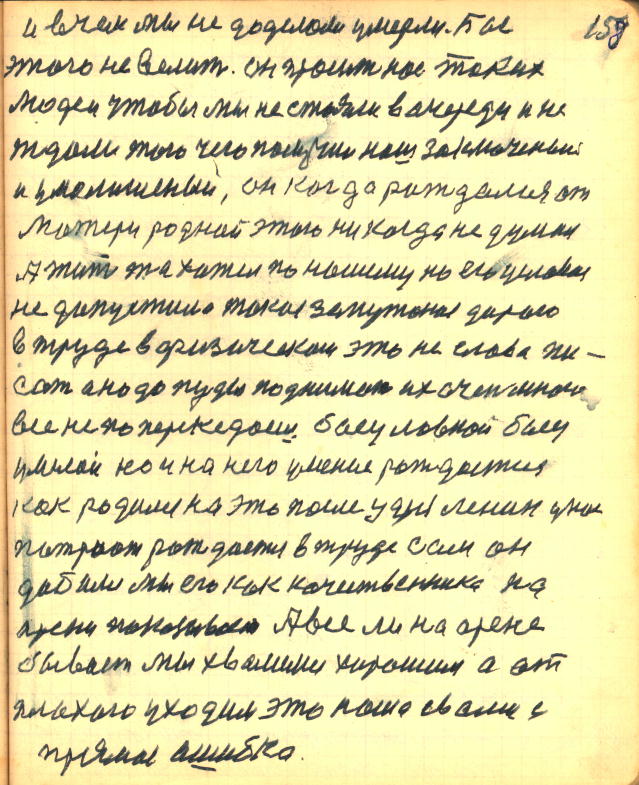 158
и в чем мы не доделом умерли. Бое
этого не велит. он просит нас таких
людей чтобы мы не стояли в очереди и не
ждали того чего получил наш заключеный
и умалишеный, он когда рождался от
матери родной этого никогда не думал
А жить та хотел по нашему но его условия
не допустило такое дорого
в труде в физическом это не слова пи-
сат а надо пуды поднимат их очен много
все не по перкедаеш. боеу ловкой боеу
умелай но и на него умение рождается
как родили на это после удуй ленин у нас
патриот рождается в труде сам он
добили мы его как качественника на
арени показывает А все ли на арене
бывает мы хвалими хорошим а от
плохого уходим это наша свами с
прямое ашибка.